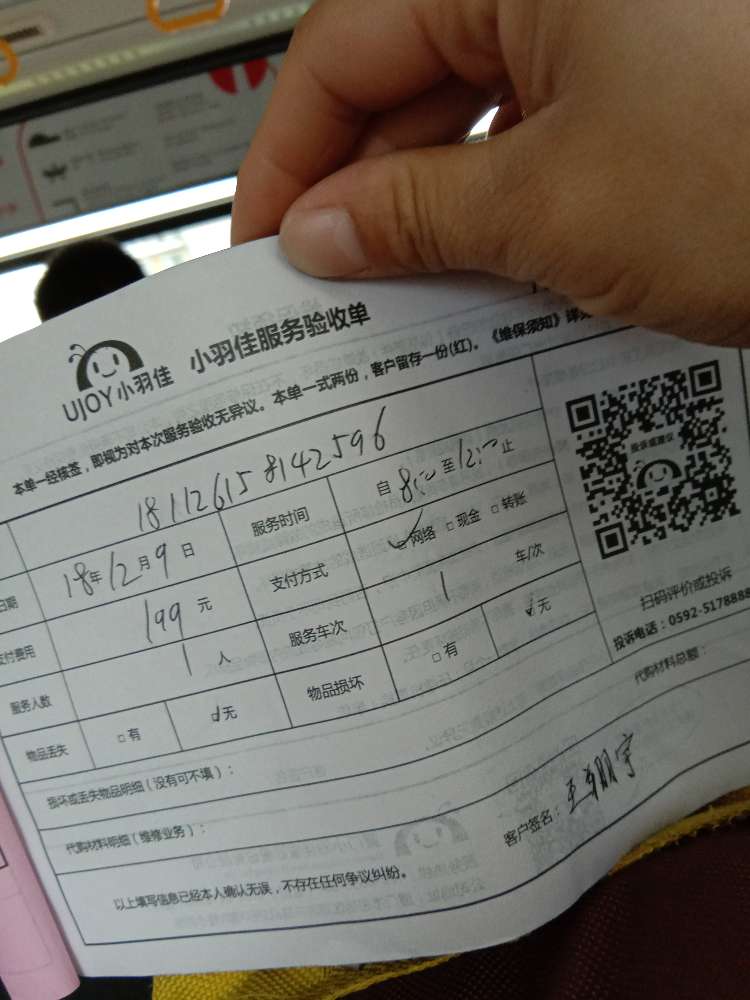 UJOY小羽佳 小羽佳服务验收单
本单一经核签，即视为对本次服务验收无异议。本单一式两份，客户留存一份(红)。《维保须知》详
18112615 8142596
日期 18年12月9日 服务时间 自8:00至12:00止
支付费用 199元 支付方式 网络 现金 转账
服务人数 1人 服务车次 1 车/次
物品丢失 有 无 物品损坏 有 无
投诉或建议
扫码评价或投诉
投诉电话：0592-5178888
损坏或丢失物品明细（没有可不填）：
代购材料明细（维修业务）： 代购材料总额：
以上填写信息已经本人确认无误，不存在任何争议纠纷。 客户签名：